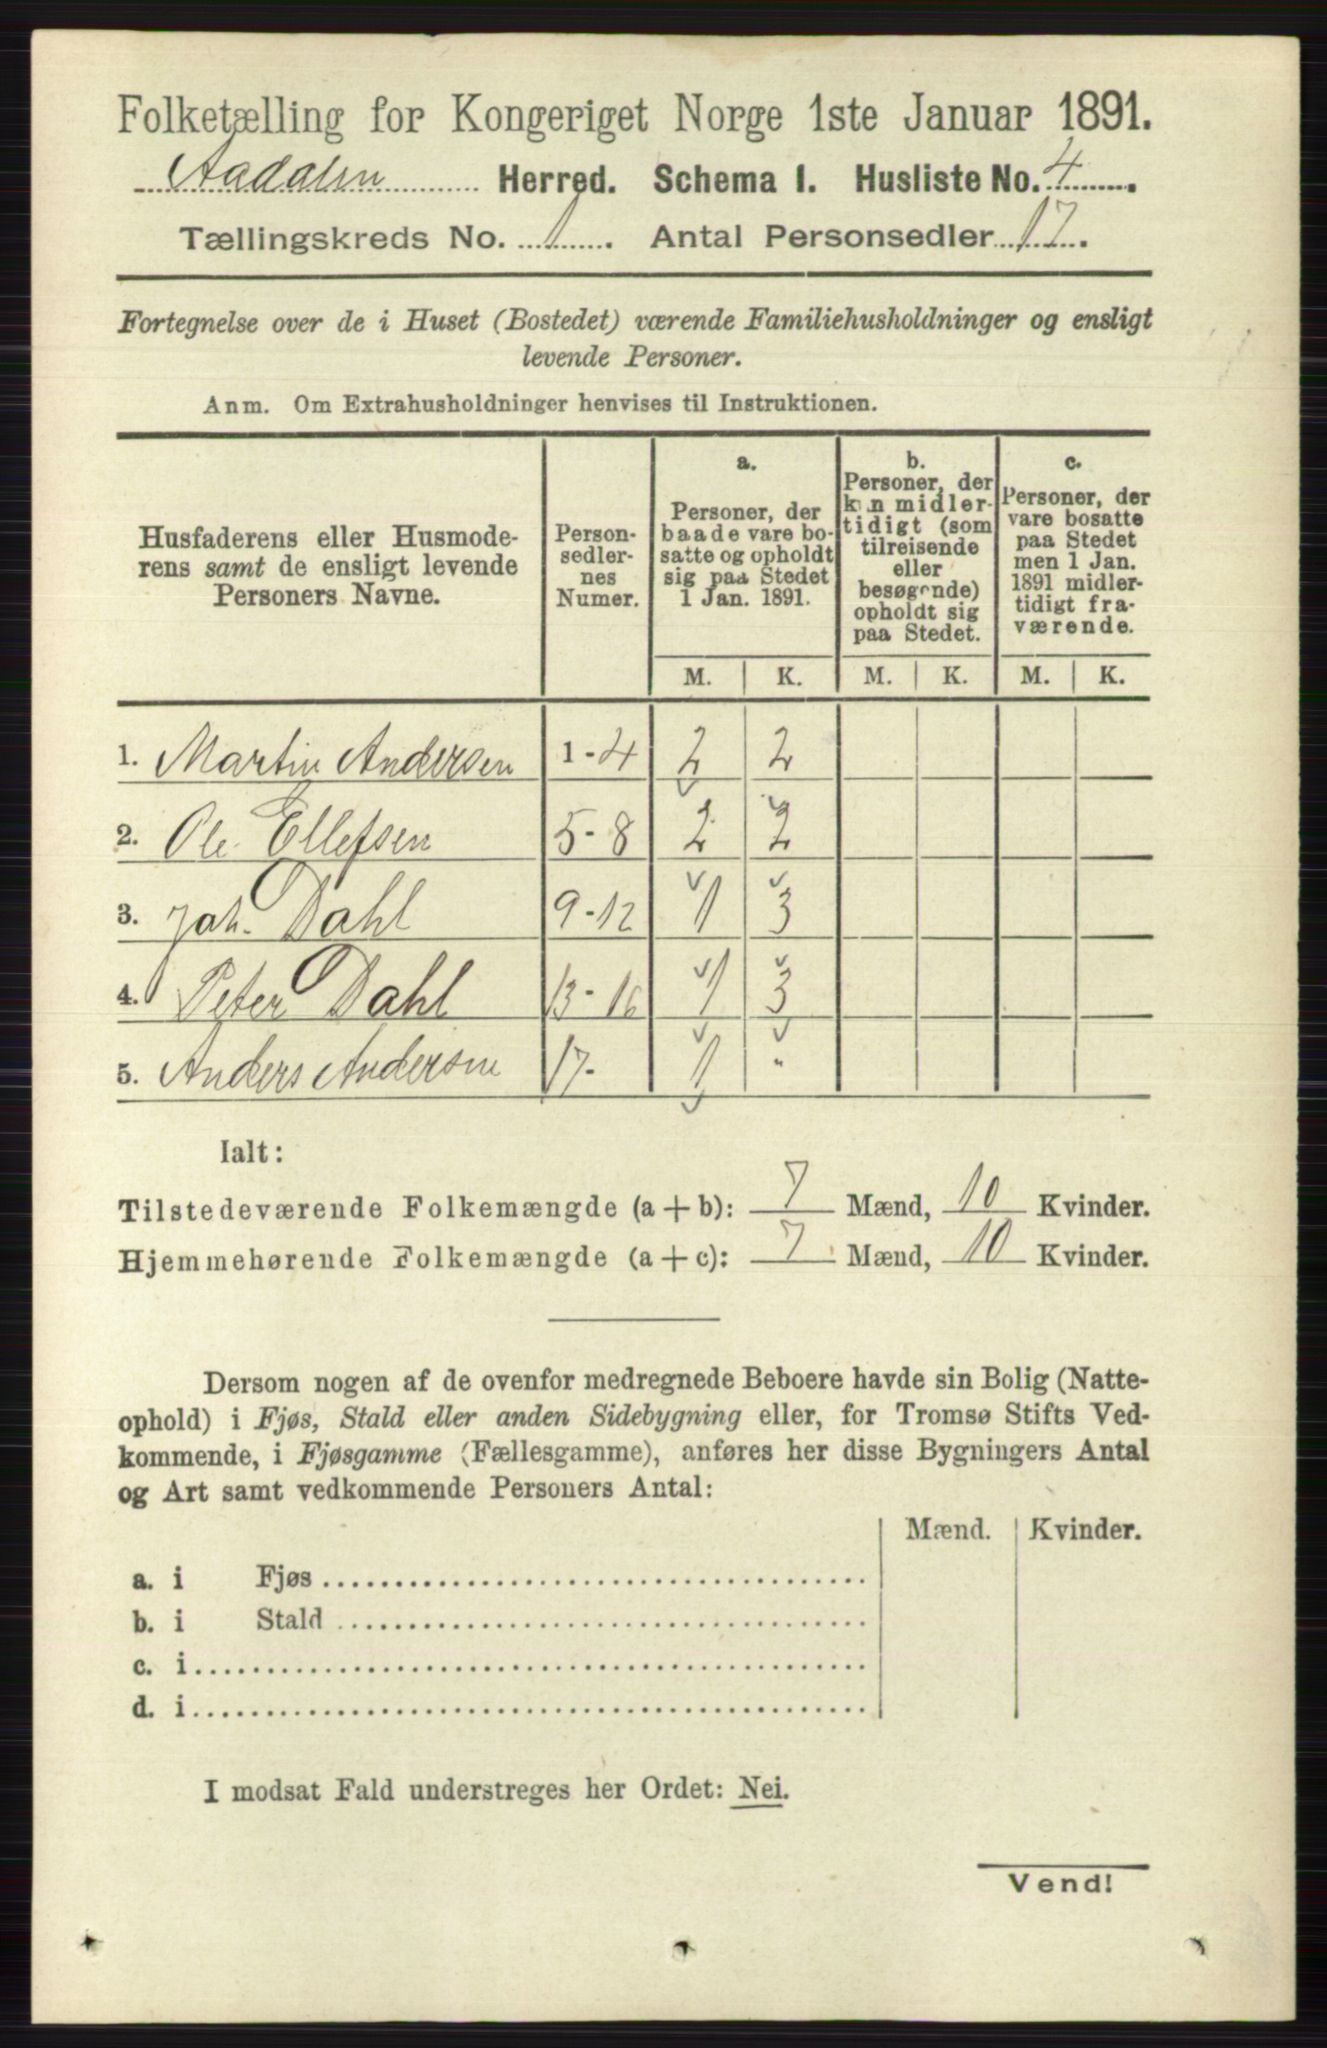 Folketælling for Kongeriget Norge 1ste Januar 1891.
Aadalen Herred. Schema I. Husliste No. 4.
Tællingskreds No. 1. Antal Personsedler 17.
Fortegnelse over de i Huset (Bostedet) værende Familiehusholdninger og ensligt
levende Personer.
Anm. Om Extrahusholdninger henvises til Instruktionen.
Husfaderens eller Husmode-
rens samt de ensligt levende
Personers Navne.
Person-
sedler-
nes
Numer.
a.
Personer, der
baade vare bo-
satte og opholdt
sig paa Stedet
1 Jan. 1891.
b.
Personer, der
kun midler-
tidigt (som
tilreisende
eller
besøgende)
opholdt sig
paa Stedet.
c.
Personer, der
vare bosatte
paa Stedet
men 1 Jan.
1891 midler-
tidigt fra-
værende.
M. K. M. K. M. K.
1. Martin Andersen 1-4 2 2
2. Ole Ellefsen 5-8 2 2
3. Joh. Dahl 9-12 1 3
4. Peter Dahl 13-16 1 3
5. Anders Andersen 17- 1 "
Ialt:
Tilstedeværende Folkemængde (a + b): 7 Mænd, 10 Kvinder.
Hjemmehørende Folkemængde (a + c): 7 Mænd, 10 Kvinder.
Dersom nogen af de ovenfor medregnede Beboere havde sin Bolig (Natte-
ophold) i Fjøs, Stald eller anden Sidebygning eller, for Tromsø Stifts Ved-
kommende, i Fjøsgamme (Fællesgamme), anføres her disse Bygningers Antal
og Art samt vedkommende Personers Antal:
Mænd. Kvinder.
a. i Fjøs
b. i Stald
c. i
d. i
I modsat Fald understreges her Ordet: Nei.
Vend!